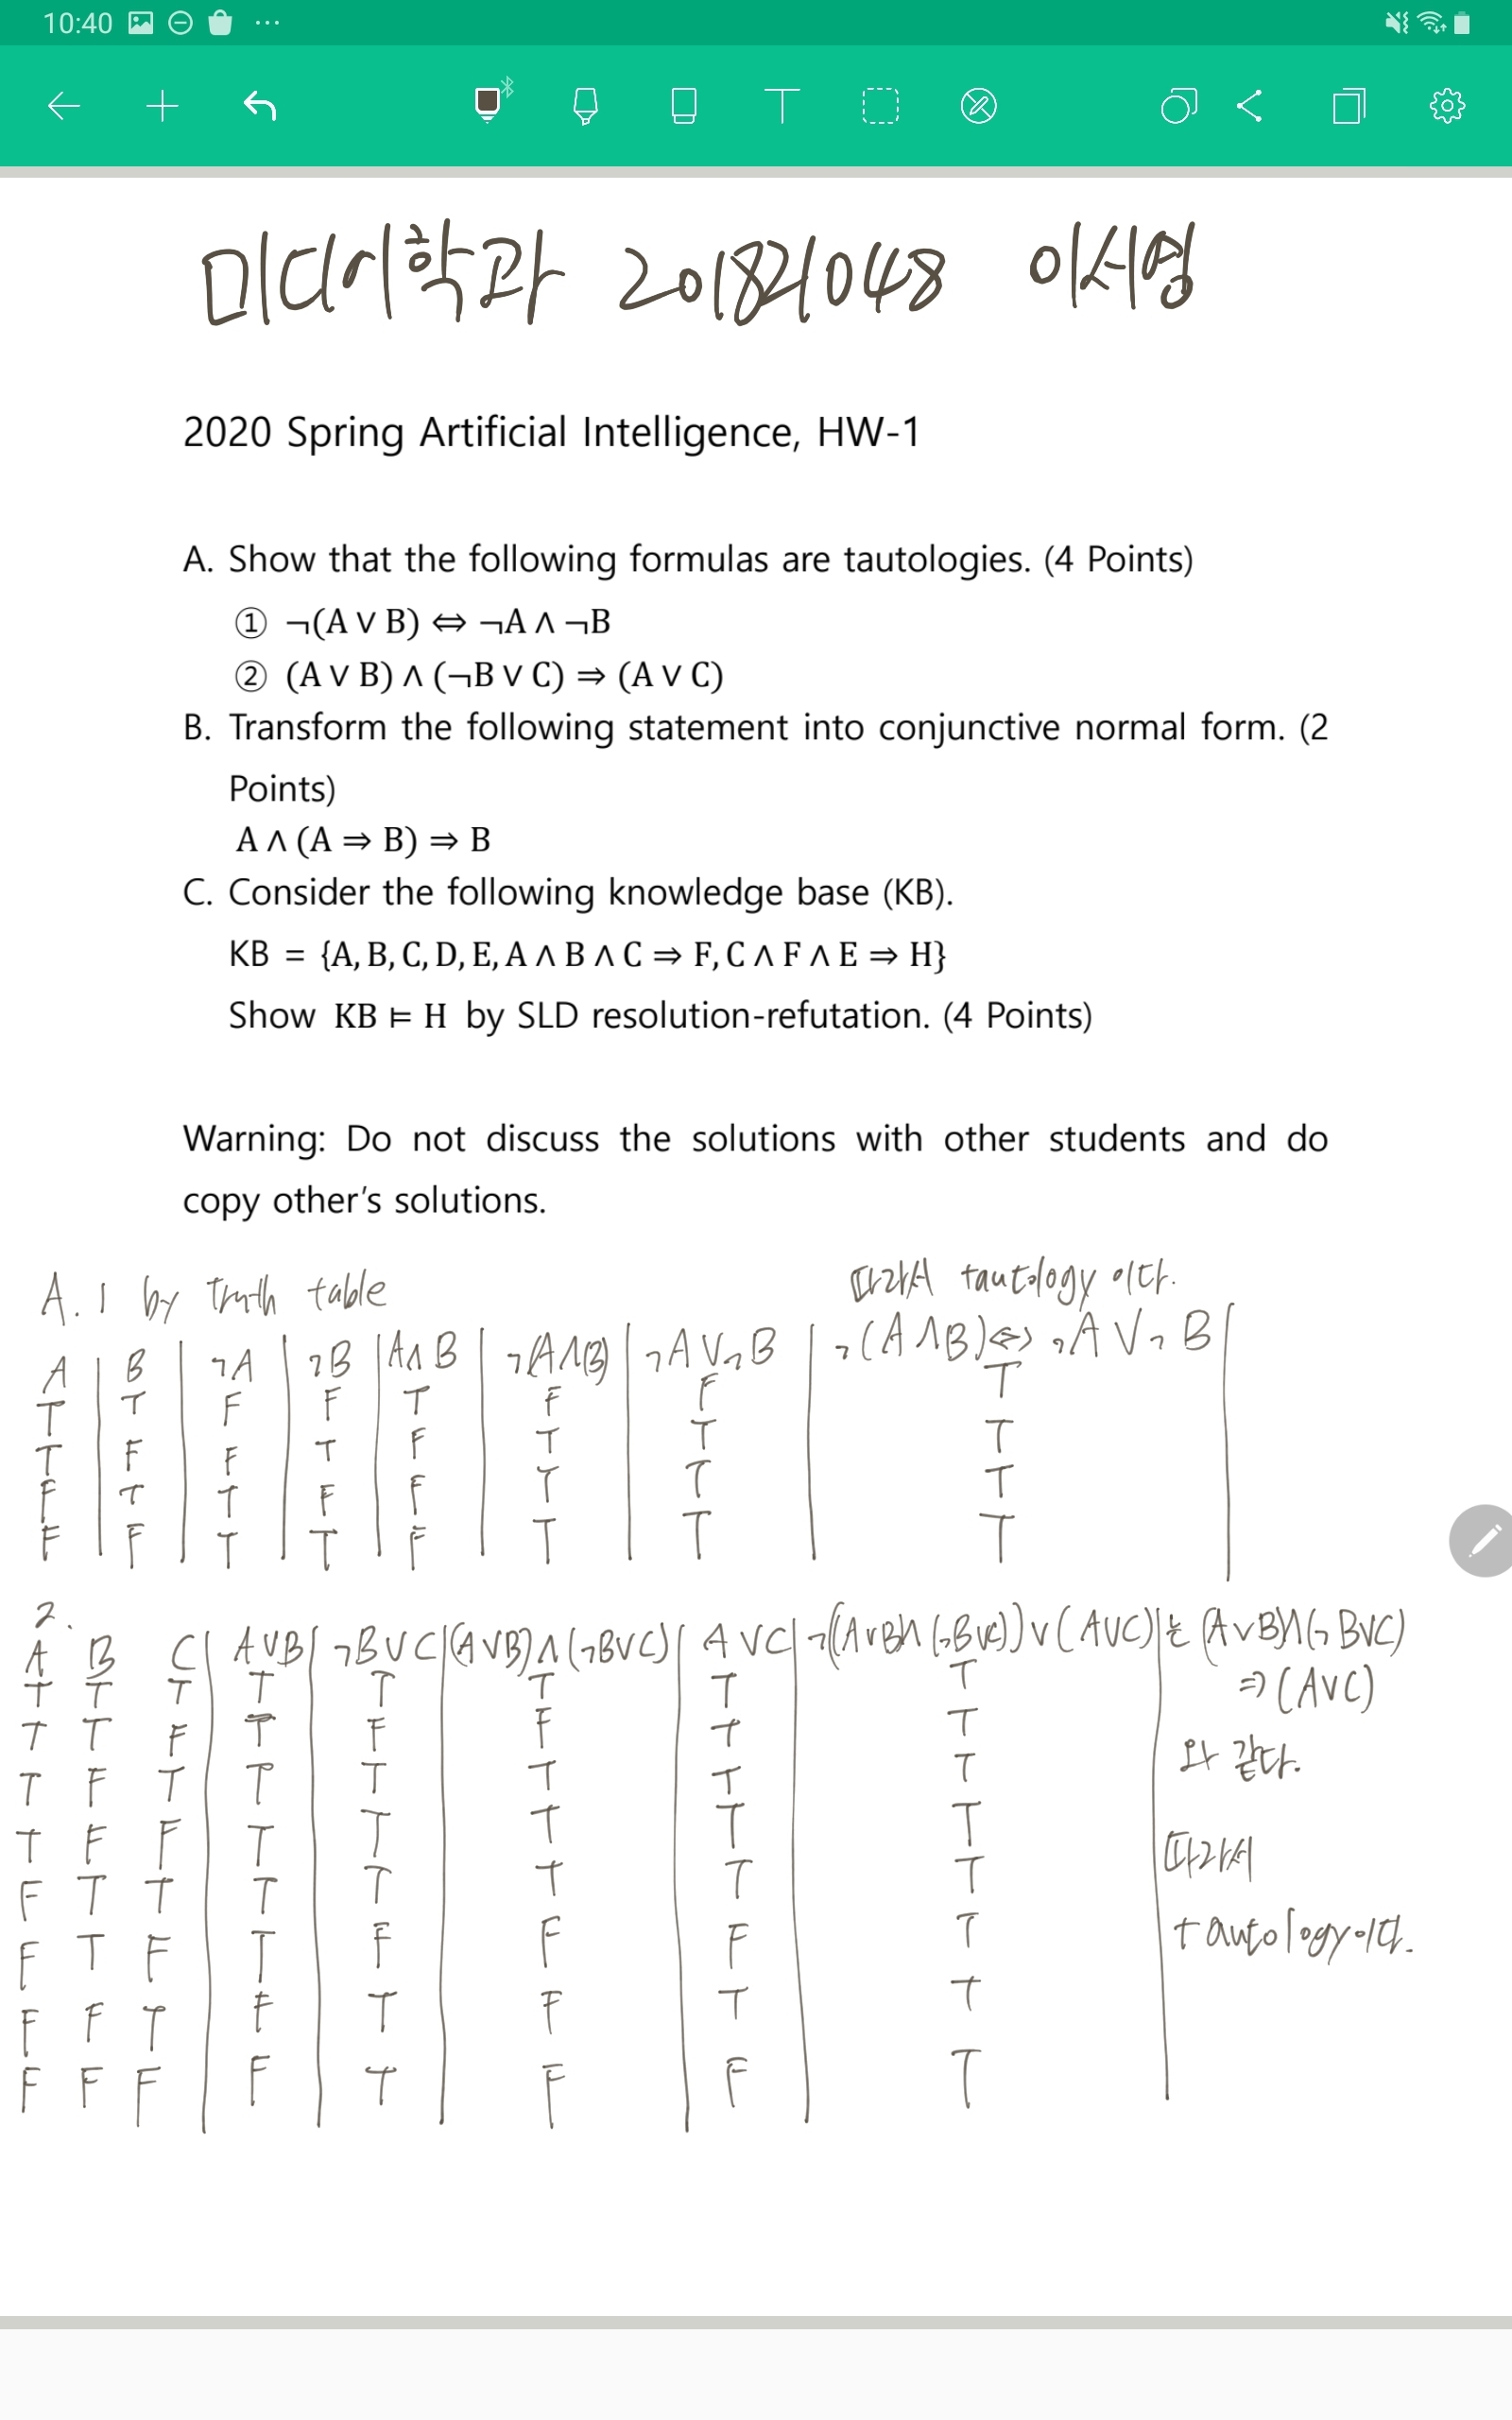 10:40
미디어학과 201821048 이시명
2020 Spring Artificial Intelligence, HW-1
A. Show that the following formulas are tautologies. (4 Points)
① ¬(A ∨ B) ⇔ ¬A ∧ ¬B
② (A ∨ B) ∧ (¬B ∨ C) ⇒ (A ∨ C)
B. Transform the following statement into conjunctive normal form. (2
Points)
A ∧ (A ⇒ B) ⇒ B
C. Consider the following knowledge base (KB).
KB = {A, B, C, D, E, A ∧ B ∧ C ⇒ F, C ∧ F ∧ E ⇒ H}
Show KB ⊨ H by SLD resolution-refutation. (4 Points)
Warning: Do not discuss the solutions with other students and do
copy other's solutions.
A. 1 by truth table
따라서 tautology 이다.
A | B | ¬A | ¬B | A∧B | ¬(A∧B) | ¬A∨¬B | ¬(A∧B)⇔¬A∨¬B |
T T F F T F F T
T F F T F T T T
F T T F F T T T
F F T T F T T T
2.
A B C | A∨B | ¬B∨C | (A∨B)∧(¬B∨C) | A∨C | ¬((A∨B)∧(¬B∨C))∨(A∨C) | 는 (A∨B)∧(¬B∨C)
⇒(A∨C)
와 같다.
따라서
tautology이다.
T T T T T T T T
T T F T F F T T
T F T T T T T T
T F F T T T T T
F T T T T T T T
F T F T F F F T
F F T F T F T T
F F F F T F F T